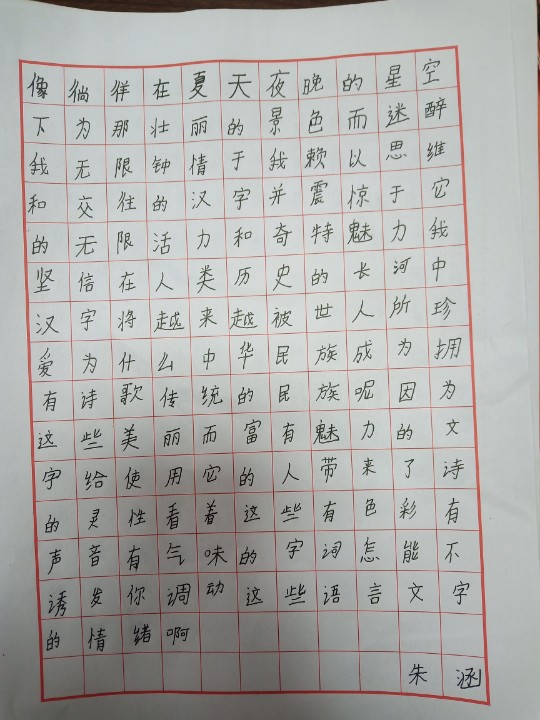 像徜徉在夏天夜晚的星空
下为那壮丽的景色而迷醉
我无限钟情于我赖以思维
和交往的汉字并震惊于它
的无限活力和奇特魅力我
坚信在人类历史的长河中
汉字将越来越被世人所珍
爱为什么中华民族成为拥
有诗歌传统的民族呢因为
这些美丽而富有魅力的文
字给使用它的人带来了诗
的灵性看着这些有色彩有
声音有气味的字词怎能不
诱发你调动这些语言文字
的情绪啊
朱涵